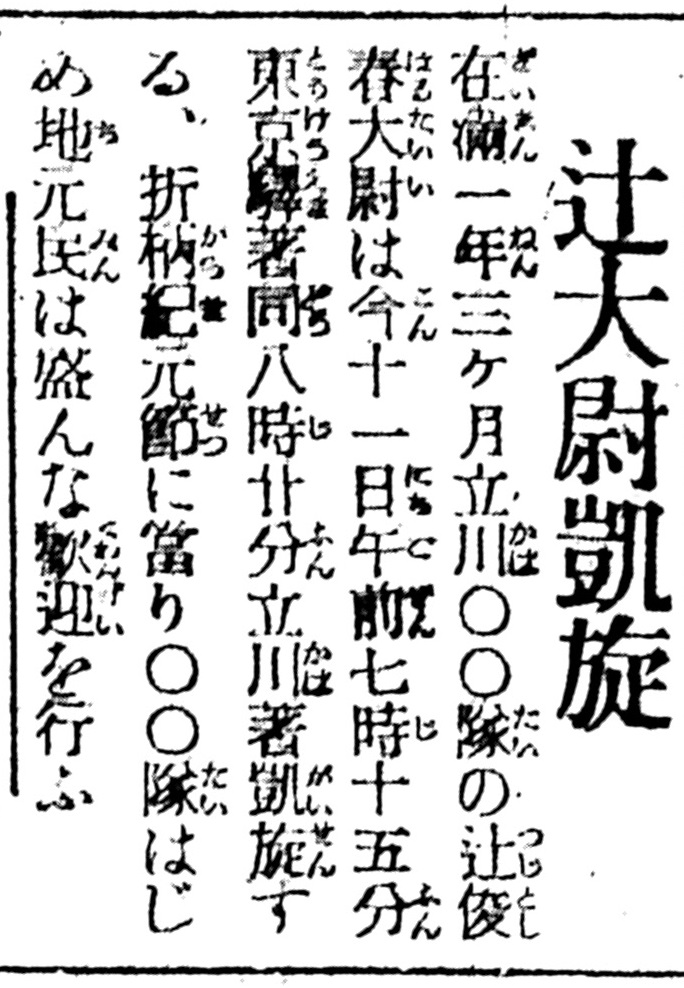 辻大尉凱旋
在滿一年三ケ月立川〇〇隊の辻俊
春大尉は今十一日午前七時十五分
東京驛著同八時廿分立川著凱旋す
る、折柄紀元節に當り〇〇隊はじ
め地元民は盛んな歡迎を行ふ